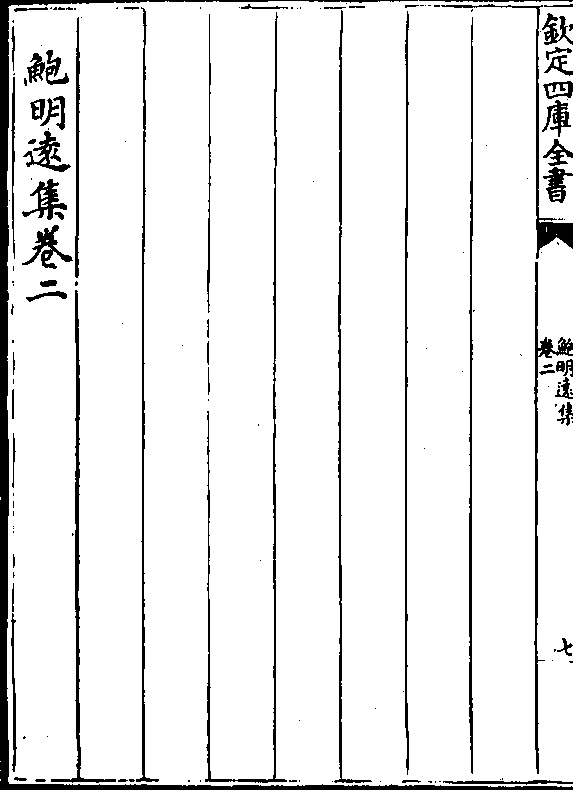 欽定四庫全書
鮑明遠集
卷二
七
鮑明遠集卷二